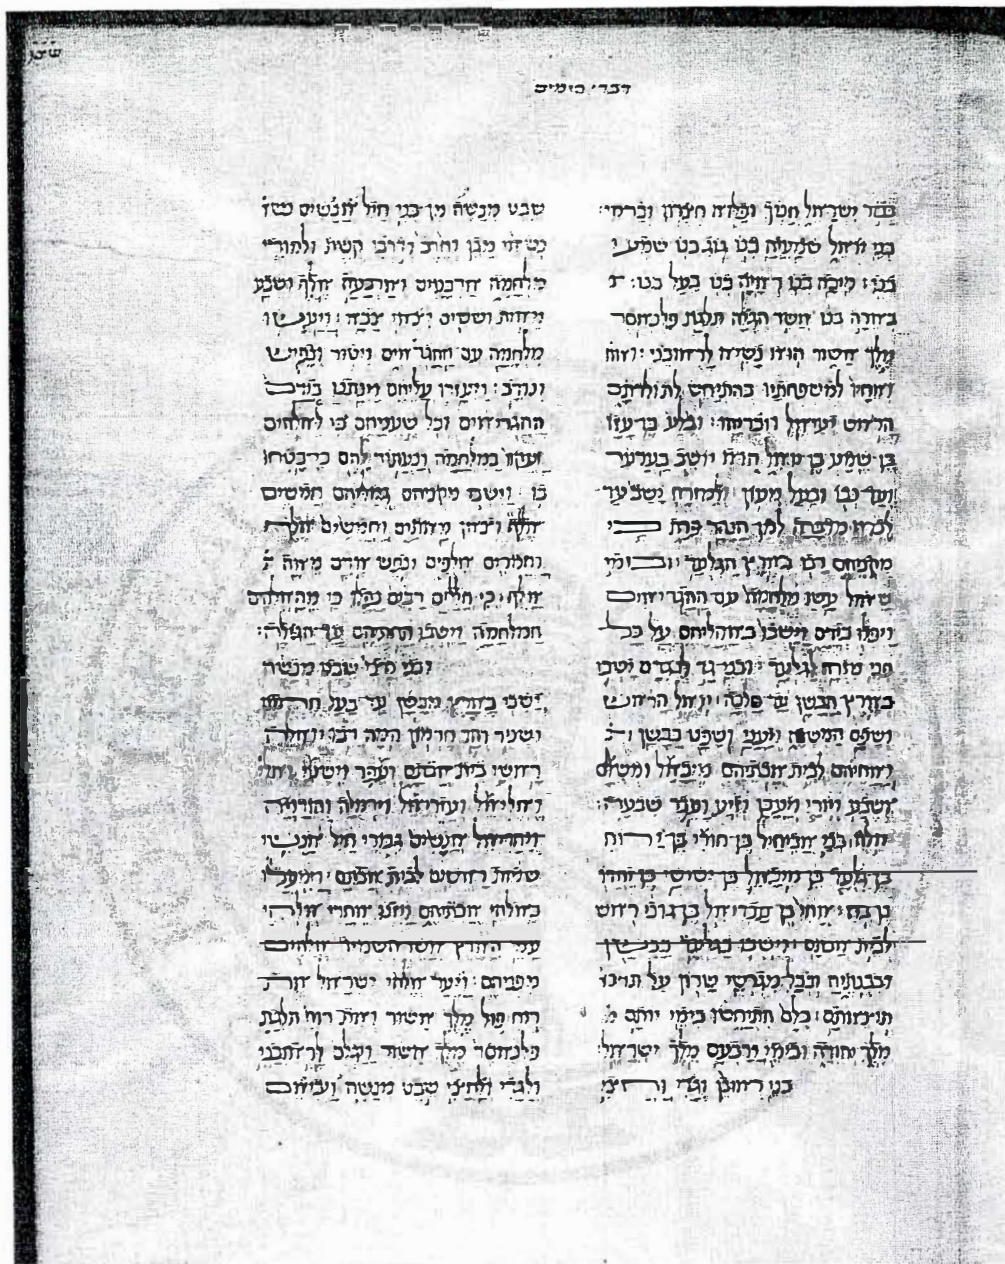 דברי הימים
בכור ישראל חנוך ופלוא חצרון וכרמי:
בני יואל שמעיה בנו גוג בנו שמעי
בנו: מיכה בנו ראיה בנו בעל בנו:
בארה בנו אשר הגלה תלגת פלנאסר
מלך אשור הוא נשיא לראובני:
ואחיו למשפחתיו בהתיחש לתולדתם
הראש יעיאל וזכריהו: ובלע בן עזז
בן שמע בן יואל הוא יושב בערער
ועד נבו ובעל מעון: ולמזרח ישב עד
לבוא מדברה למן הנהר פרת כי
מקניהם רבו בארץ הגלעד: ובימי
שאול עשו מלחמה עם ההגריאים
ויפלו בידם וישבו באהליהם על כל
פני מזרח לגלעד: ובני גד לנגדם ישבו
בארץ הבשן עד סלכה: יואל הראש
ושפם המשנה ויעני ושפט בבשן:
ואחיהם לבית אבתיהם מיכאל ומשלם
ושבע ויורי ויעכן וזיע ועבר שבעה:
אלה בני אביחיל בן חורי בן ירוח
בן גלעד בן מיכאל בן ישישי בן יחדו
בן בוז: אחי בן עבדיאל בן גוני ראש
לבית אבתם: וישבו בגלעד בבשן
ובבנתיה ובכל מגרשי שרון על
תוצאותם: כלם התיחשו בימי יותם
מלך יהודה ובימי ירבעם מלך ישראל:
בני ראובן וגדי וחצי
שבט מנשה מן בני חיל אנשים
נשאי מגן וחרב ודרכי קשת ולמודי
מלחמה ארבעים וארבעה אלף ושבע
מאות וששים יצאי צבא: ויעשו
מלחמה עם ההגריאים ויטור ונפיש
ונודב: ויעזרו עליהם וינתנו בידם
ההגריאים וכל שעמהם כי לאלהים
זעקו במלחמה ונעתור להם כי בטחו
בו: וישבו מקניהם גמליהם חמשים
אלף וצאן מאתים וחמשים אלף
וחמורים אלפים ונפש אדם מאה
אלף: כי חללים רבים נפלו כי מהאלהים
המלחמה וישבו תחתיהם עד הגלה:
ובני חצי שבט מנשה
ישבו בארץ מבשן עד בעל חרמון
ושניר והר חרמון המה רבו: ואלה
ראשי בית אבתם ועפר וישעי
ואליאל ועזריאל וירמיה והודויה
ויחדיאל אנשים גבורי חיל אנשי
שמות ראשים לבית אבתם: וימעלו
באלהי אבתיהם ויזנו אחרי אלהי
עמי הארץ אשר השמיד אלהים
מפניהם: ויער אלהי ישראל את
רוח פול מלך אשור ואת רוח תלגת
פלנאסר מלך אשור ויגלם לראובני
ולגדי ולחצי שבט מנשה ויביאם